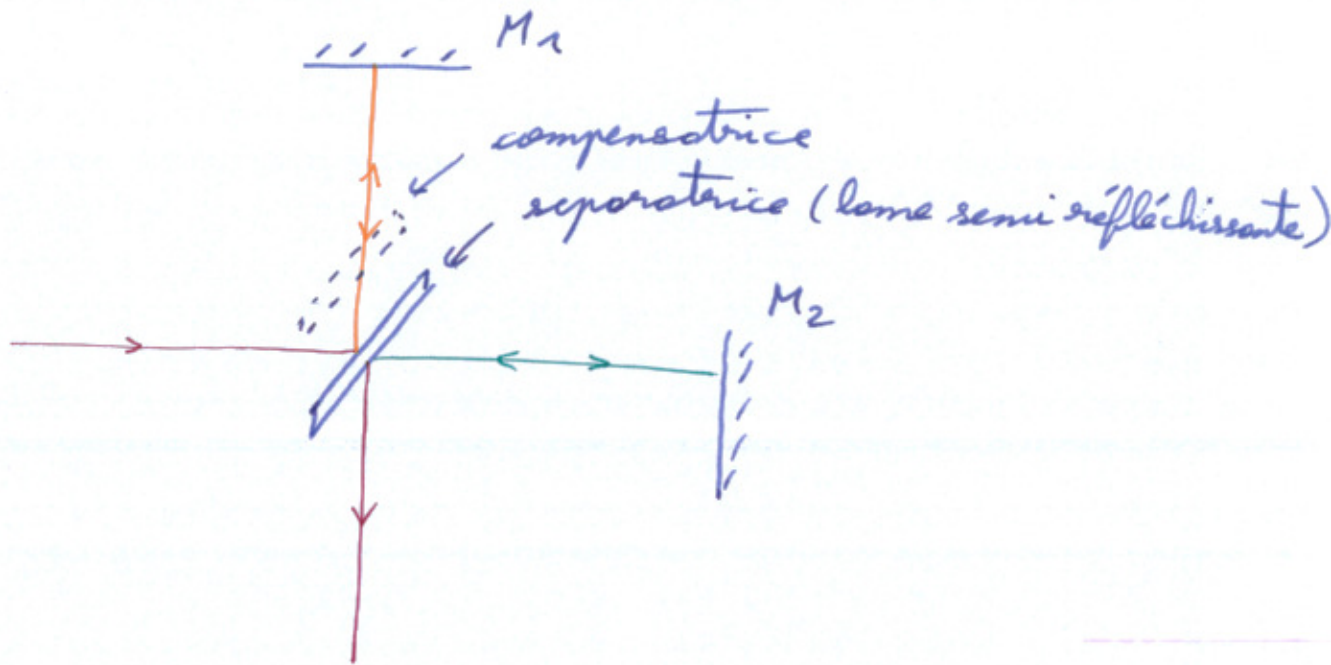 M1
compensatrice
séparatrice (lame semi réfléchissante)
M2